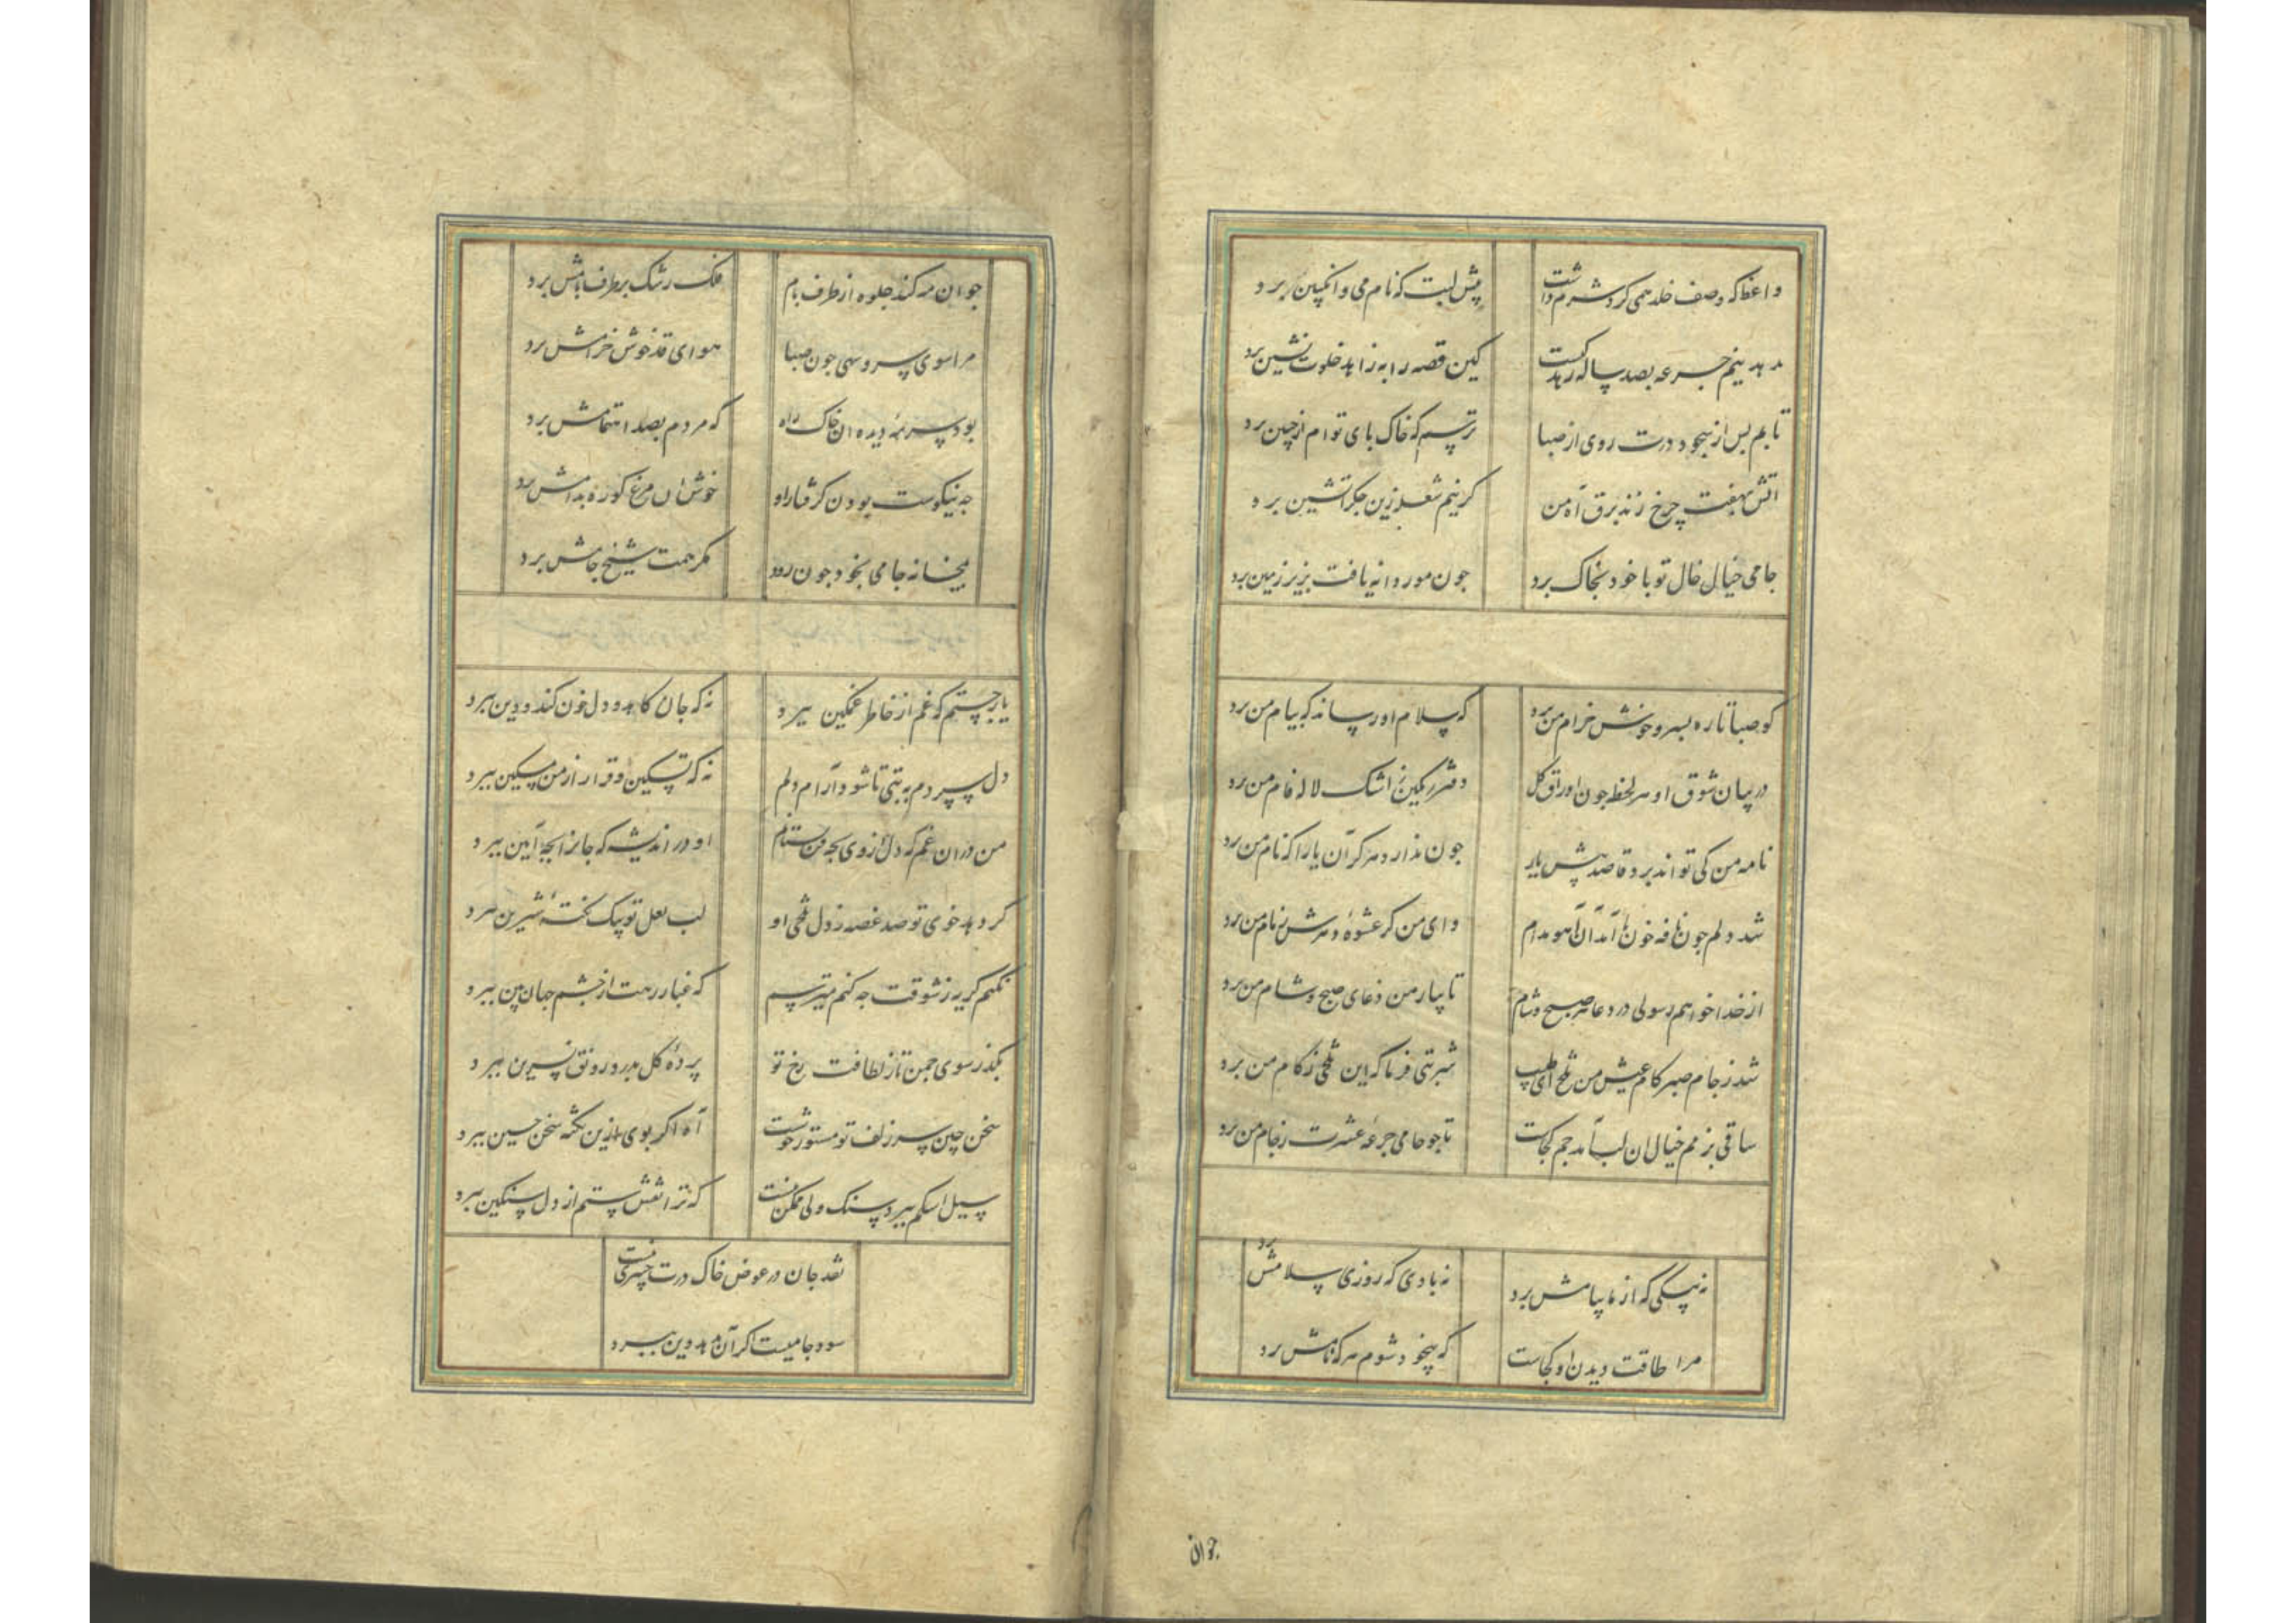 واعظ که وصف خلد همی کرد شرم داشت
پیش لبت که نام می و انگبین برد
ندهد بنیم جرعه بصد ساله زهد کست
کین قصه را به زاهد خلوت نشین برد
تابم پس از سجود درت روی از صبا
ترسم که خاک پای توام از جبین برد
آتش بهفت چرخ زند برق آه من
گر نیم شعله زین جگر آتشین برد
جامی خیال خال تو با خود بخاک برد
چون مور دانه یافت بزیر زمین برد
کو صبا تا ره بسرو خوش خرام من برد
که سلام او رساند که پیام من برد
در بیان شوق او هر لحظه چون اوراق گل
دفتر رنگین ز اشک لاله فام من برد
نامه من کی تواند برد قاصد پیش یار
چون ندارد زهره کان یارا که نام من برد
شد دلم چون نافه خون تا آمد آن آهو بدام
وای من گر عشوه دهرش ز دام من برد
از خدا خواهم رسولی در دعا هر صبح و شام
تا بیار من دعای صبح و شام من برد
شد ز جام صبر کام عیش من تلخ ای طبیب
شربتی فرما که این تلخی ز کام من برد
ساقی بزمم خیال ان لب آمد جم کجاست
تا چو جامی جرعه عشرت ز جام من برد
نه پیکی که از ما پیامش برد
نه بادی که روزی سلامش برد
مرا طاقت دیدن او کجاست
که بیخود شوم هر که نامش برد
جوان
جو ان مه کند جلوه از طرف بام
فلک رشک بر طرف بامش برد
مرا سوی سرو سهی جون صبا
هوای قد خوش خرامش برد
بود سرمه دیده ان خاک راه
که مردم بصد اهتمامش برد
چه نیکوست بودن گرفتار او
خوش ان مرغ کو ره بدامش برد
بمیخانه جامی بخود چون رود
مگر همت شیخ جامش برد
یار جستم که غم از خاطر غمگین ببرد
نه که جان کاهد و دل خون کند و دین ببرد
دل سپردم به بتی تا شود آرام دلم
نه که تسکین و قرار از من مسکین ببرد
من در ان غم که دل از وی بچه فن بستانم
او در اندیشه که جانرا بچه آیین ببرد
گر دهد خوی تو صد غصه ز دل تلخی او
لب لعل تو بیک نکته شیرین ببرد
نکنم گریه ز شوقت چه کنم میترسم
که غبار رهت از چشم جهان بین ببرد
بگذر سوی چمن تا ز لطافت رخ تو
پرده گل بدرد رونق نسرین ببرد
سخن چین سر زلف تو مستور خوشست
آه اگر بوی ازین نکته سخن چین ببرد
سیل اشکم ببرد سنگ ولی ممکن نیست
که ترا نقش ستم از دل سنگین ببرد
نقد جان در عوض خاک درت چیزی نیست
سود جامیست اگر آن بدهد وین ببرد